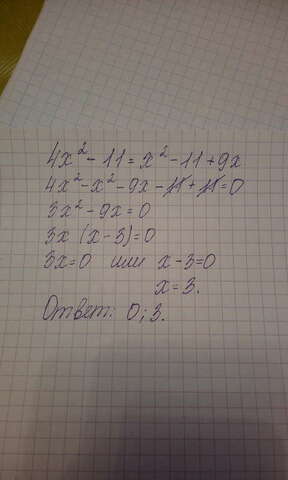 4x² - 11 = x² - 11 + 9x
4x² - x² - 9x - 11 + 11 = 0
3x² - 9x = 0
3x (x - 3) = 0
3x = 0 или x - 3 = 0
x = 3.
Ответ: 0; 3.